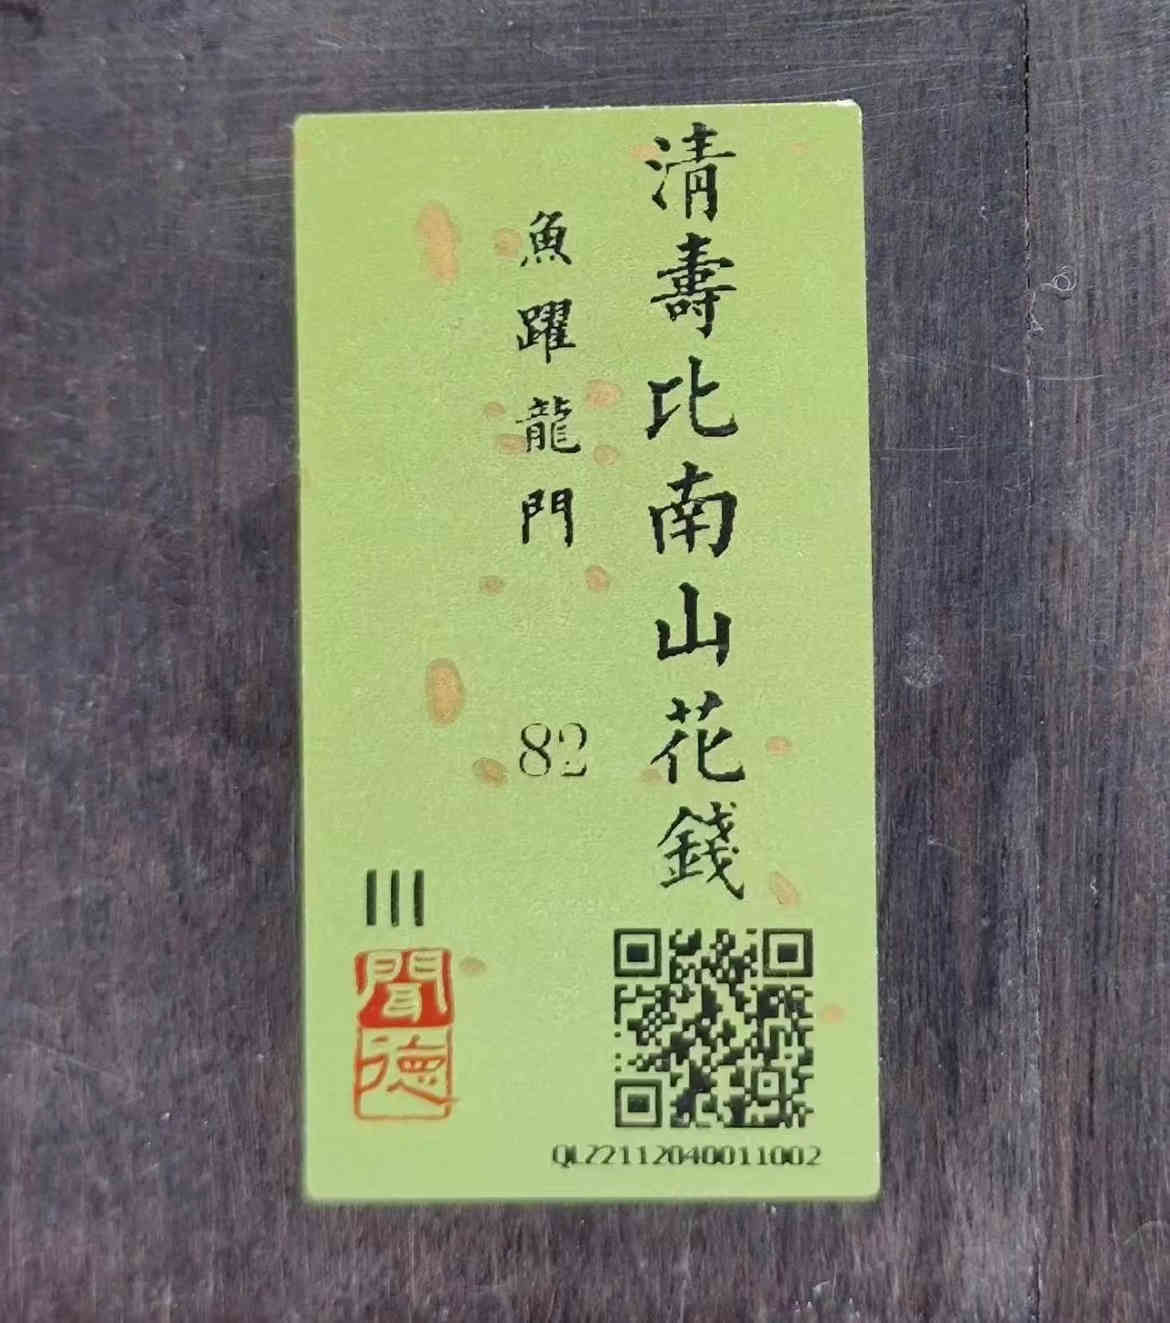 清壽比南山花錢
魚躍龍門
82
III
聞德
QLZ2112040011002